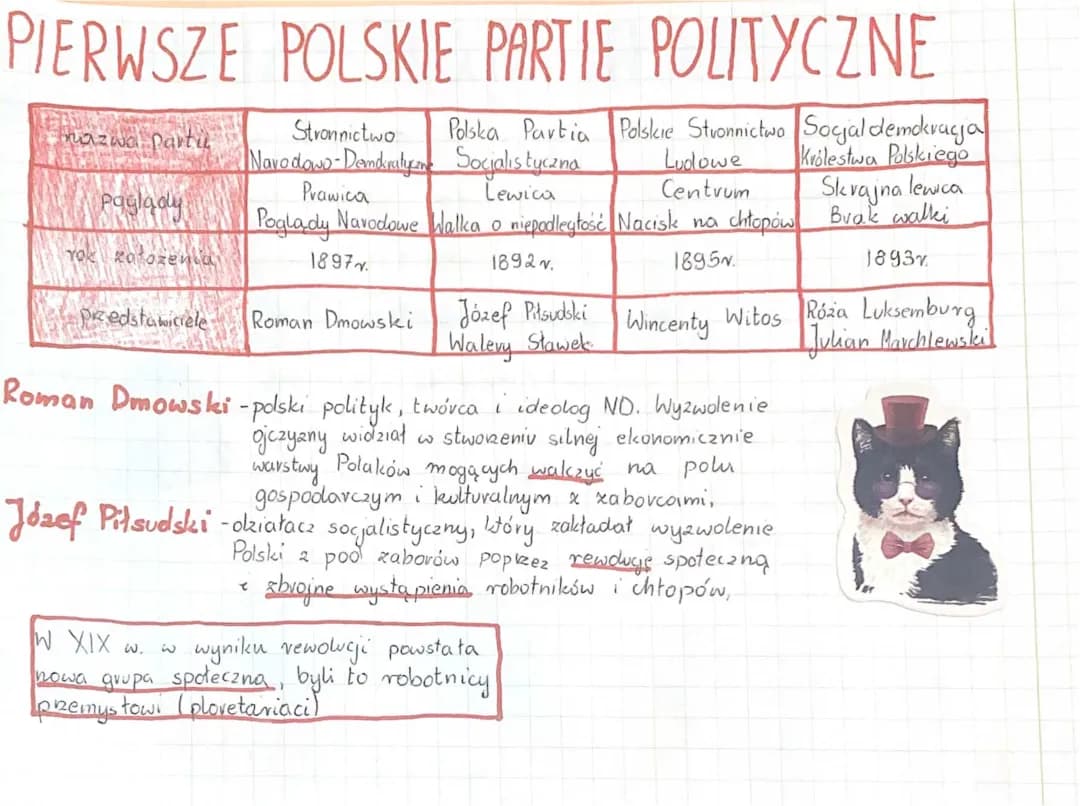 PIERWSZE POLSKIE PARTIE POLITYCZNE
nazwa partii
Stronnictwo Narodowo-Demokratyczne
Polska Partia Socjalistyczna
Polskie Stronnictwo Ludowe
Socjaldemokracja Królestwa Polskiego
poglądy
Prawica
Poglądy Narodowe
Lewica
Walka o niepodległość
Centrum
Nacisk na chłopów
Skrajna lewica
Brak walki
rok założenia
1897r.
1892r.
1895r.
1893r.
przedstawiciele
Roman Dmowski
Józef Piłsudski
Walery Sławek
Wincenty Witos
Róża Luksemburg
Julian Marchlewski
Roman Dmowski - polski polityk, twórca i ideolog ND. Wyzwolenie
ojczyzny widział w stworzeniu silnej ekonomicznie
warstwy Polaków mogących walczyć na polu
gospodarczym i kulturalnym z zaborcami,
Józef Piłsudski - działacz socjalistyczny, który zakładał wyzwolenie
Polski z pod zaborów poprzez rewolucję społeczną
i zbrojne wystąpienia robotników i chłopów,
W XIX w. w wyniku rewolucji powstała
nowa grupa społeczna, byli to robotnicy
przemysłowi (ploretariaci)